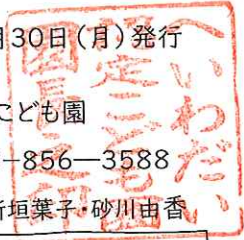 月30日(月)発行
こども園
-856-3588
新垣葉子・砂川由香
へいわだい
認定こども園
園長之印